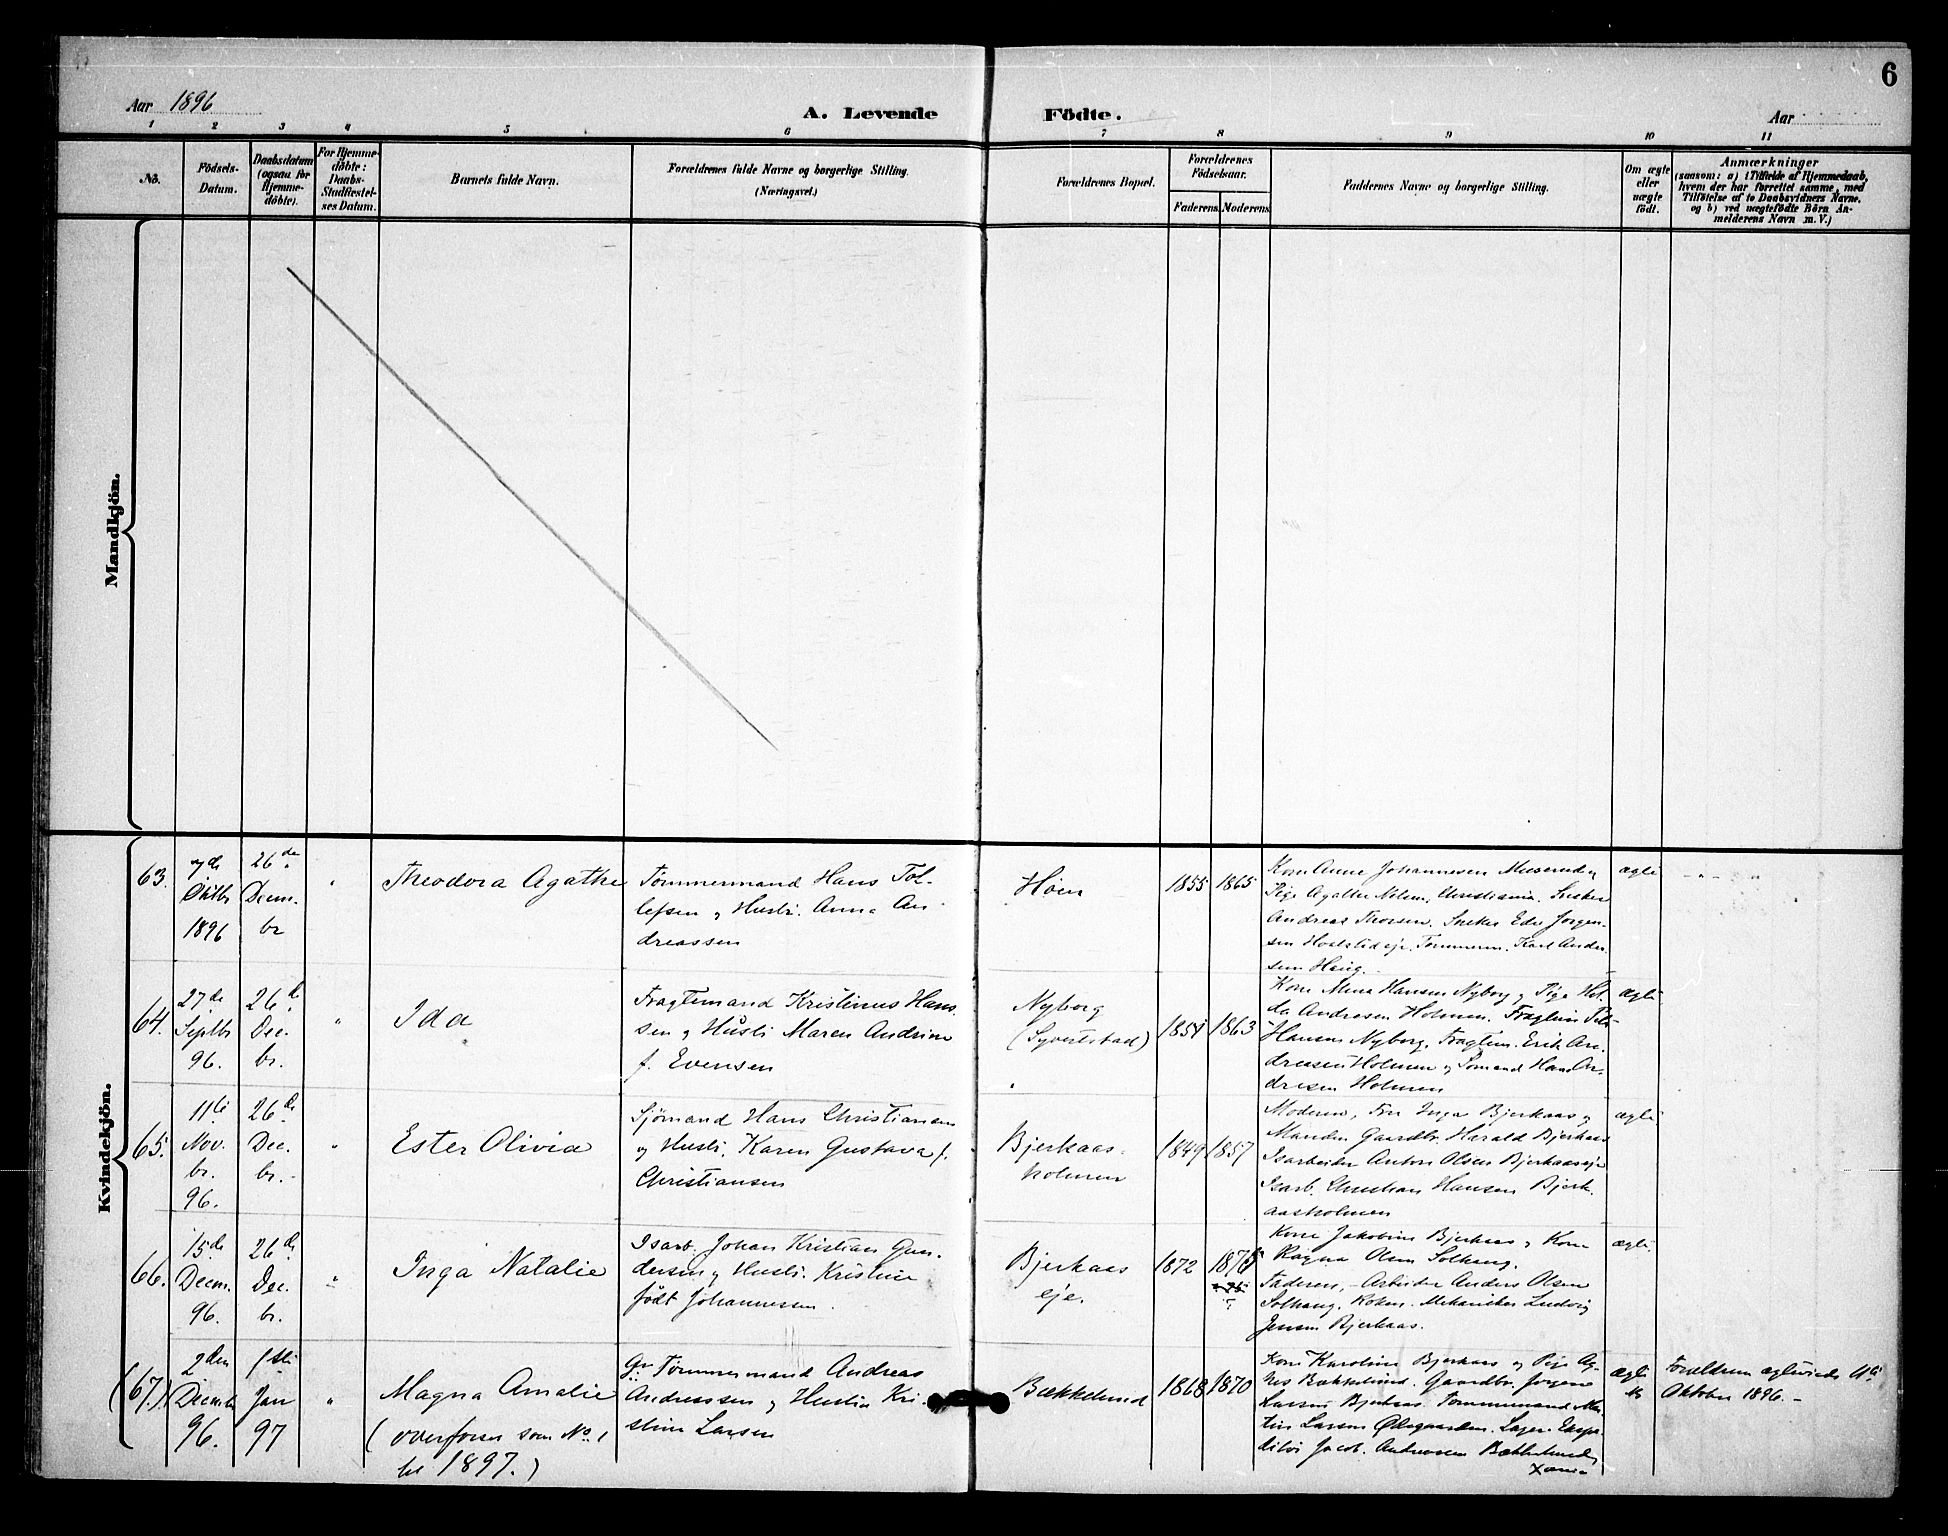 6
Aar 1896
A. Levende Födte.
Aar
1 2 3 4 5 6 7 8 9 10 11
No.
Födsels-
Datum.
Daabsdatum
(ogsaa for
Hjemme-
döbte).
For Hjemme-
döbte:
Daabs-
Stadfæstel-
ses Datum.
Barnets fulde Navn.
Forældrenes fulde Navne og borgerlige Stilling.
(Næringsvei.)
Forældrenes Bopæl.
Forældrenes
Födselsaar.
Faderens.
Moderens.
Faddernes Navne og borgerlige Stilling.
Om ægte
eller
uægte
födt.
Anmærkninger
(saasom: a) i Tilfælde af Hjemmedaab,
hvem der har forrettet samme, med
Tilföielse af to Daabsvidners Navne,
og b) ved uægtefödte Börn An-
melderens Navn m. V.)
Mandkjön.
Kvindekjön.
63.
7de
Oktbr
1896
26de
Decm.
br
"
Theodora Agathe
Tømmermand Hans Tol-
lefsen og Hustr. Anna An-
dreassen
Høien
1855
1865
Kone Anne Johannesen
Pige Agathe Nilsen, Christiania. Snekker
Andreas Thorsen. Snekker Edv. Jørgen-
sen Tømmerm. Karl Ander-
sen Haug.
ægte
" " "
64.
27de
Septbr
96.
26d
Dec.
br.
"
Ida
Fragtemand Kristinus Han-
sen og Hustr. Maren Andrine
f. Evensen
Nyborg
(Syverstbad)
1863
Kone Mina Hansen Nyborg og Pige Hul-
da Andresen Holmen. Fragtem.
Hansen Nyborg. Fragtem. Erik An-
dreasen Holmen og Sømand Hans An-
dresen Holmen
ægte
65.
11te
Nov.
br.
96.
26d
Dec.
br.
"
Ester Olivia
Sjömand Hans Christiansen
og Hustr. Karen Gustava f.
Christiansen
Bjerkaas-
holmen
1849
1857
Moderen, Fru Inga Bjerkaas og
Manden Gaardbr. Harald Bjerkaas
Isarbeider Anton Olsen Bjerkaaseje
Isarb. Christian Hansen Bjerk-
aasholmen
ægte
66.
15de
Decm.
96.
26de
Dec.
br.
"
Inga Natalie
Isarb. Johan Kristian Gun-
dersen og Hustr. Kristine
født Johannessen.
Bjerkaas
eje.
1872
Kone Jakobine Bjerkaas og Kone
Ragna Olsen Solhaug.
Faderen, - Arbeider Anders Olsen
Solhaug. Mekaniker Ludvig
Jensen Bjerkaas.
ægte
(67.)
2den
Decmbr
96.
1ste
Jan
97
"
Magna Amalie
(overføres som No 1
til 1897.)
Tømmermand Andreas
Andreassen og Hustru Kri-
stine Larsen
Bækkelund
1868
1870
Kone Karoline Bjerkaas og Pige Ag-
nes Bækkelund. Gaardbr. Jørgen
Larsen Bjerkaas. Tømmermand Mar-
tin Larsen Ødegaarden. Lager-Expe-
ditør Jacob Andreassen Bækkelund,
Xania
ægte
Forældrene ægteviede
Oktober 1896. -